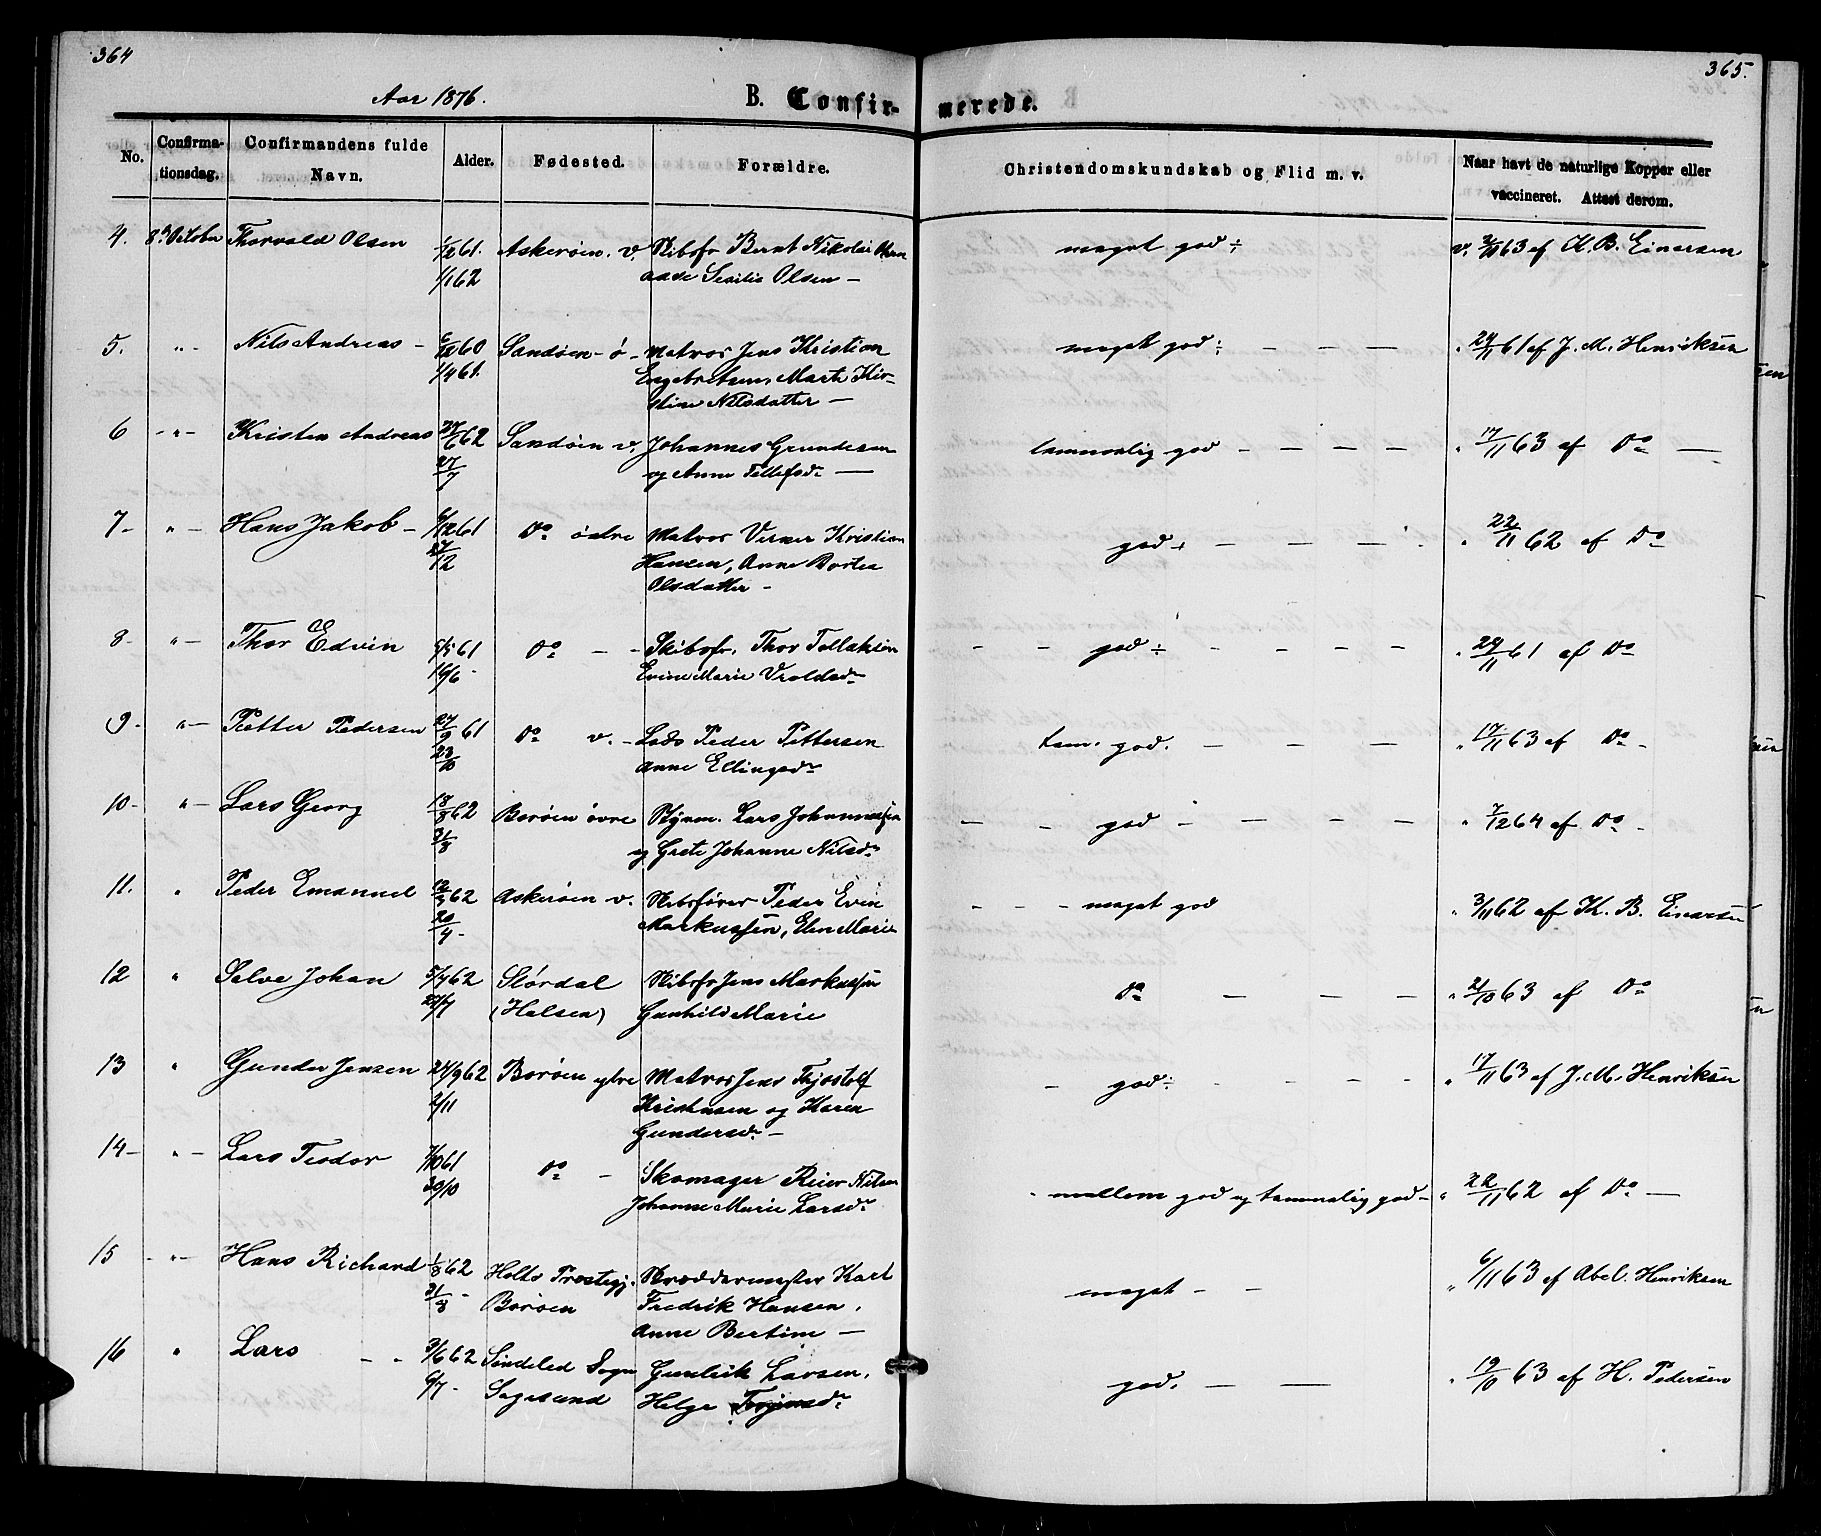 364
365.
Aar 1876.
B. Confir-
merede.
No.
Confirma-
tionsdag.
Confirmandens fulde
Navn.
Alder.
Fødested.
Forældre.
Christendomskundskab og Flid m. v.
Naar havt de naturlige Kopper eller
vaccineret. Attest derom.
4. 8de October Thorvald Olsen 61. Askerøen. v. Skibsfr Bernt Nikolai meget god ÷ v. 63 af B. Einersen
1/1 62 Olsen —
5. „ Nils Andreas - 6/12 60 Sandøen - ø - Matros Jens Kristian meget god ÷ — — — — „ 24/11 61 af J. M. Henriksen
1/4 61. Engebretsen, Marte Kir-
stine Nilsdatter —
6 - „ - Kristen Andreas 62 Sandøen v. Johannes Gundersen god — — — — „ 17/11 63 af Do —
27/7 og Anne Tellefsdr —
7 - „ - Hans Jakob - 6/12 61 Do Matros Verner Kristian god ÷ — — — „ 22/11 62 af Do
27/12 Hansen, Anne Olsdatter -
8 - „ - Thor Edvin 5/5 61 Do - - Skibsfr. Thor Tollaksen - - god ÷ - - - - „ 24/11 61 af Do
16/6 - Evine Marie
9 - „ - Petter Pedersen 27/9 61 Do v. - Peder Pettersen tem. god. — — — „ 17/11 63 af Do -
23/10 Anne Ellingsdr
10 - „ - Lars Georg 18/8 62 Borøen øvre Styrm. Lars Johannessen — - god - — — — „ 7/12 64 af Do -
31/8 og Grete Johanne Nilsdr
11. „ Peder Emanuel 12/3 62 Askerøen v. Skibsfører Peder Evin - - - meget god „ 3/11 62 af B. Einersen
20/4 - Markussen, Elen Marie
12 „ Selve Johan 5/4 62 Størdal Skibsfr Jens Markussen Do — — — „ 21/10 63 af Do
(Halsen) Gunhild Marie
13 „ Gunder Jensen 24/9 62 Borøen ytre Matros Jens Thjostolf - god ÷ - - - - „ 17/11 63 af J. M. Henriksen
2/11 Kristensen og Karen
Gundersdr -
14 - „ - Lars Teodor 7/10 61 Do - Skomager Reier Nilsen - mellem god og temmelig god - „ 22/11 62 af Do —
30/10 Johanne Marie Larsdr
15 - „ - Hans Richard 1/8 62 Holts Prestegj. Skræddermester Karl meget - - „ 6/11 63 af Abel. Henriksen
31/8 - Borøen Fredrik Hansen,
Anne Bertine —
16 „ Lars - - 3/6 62 Søndeled Sogn Gunleik Larsen, god. — — „ 19/10 63 af H. Pedersen
6/7 - Sagesund Helge